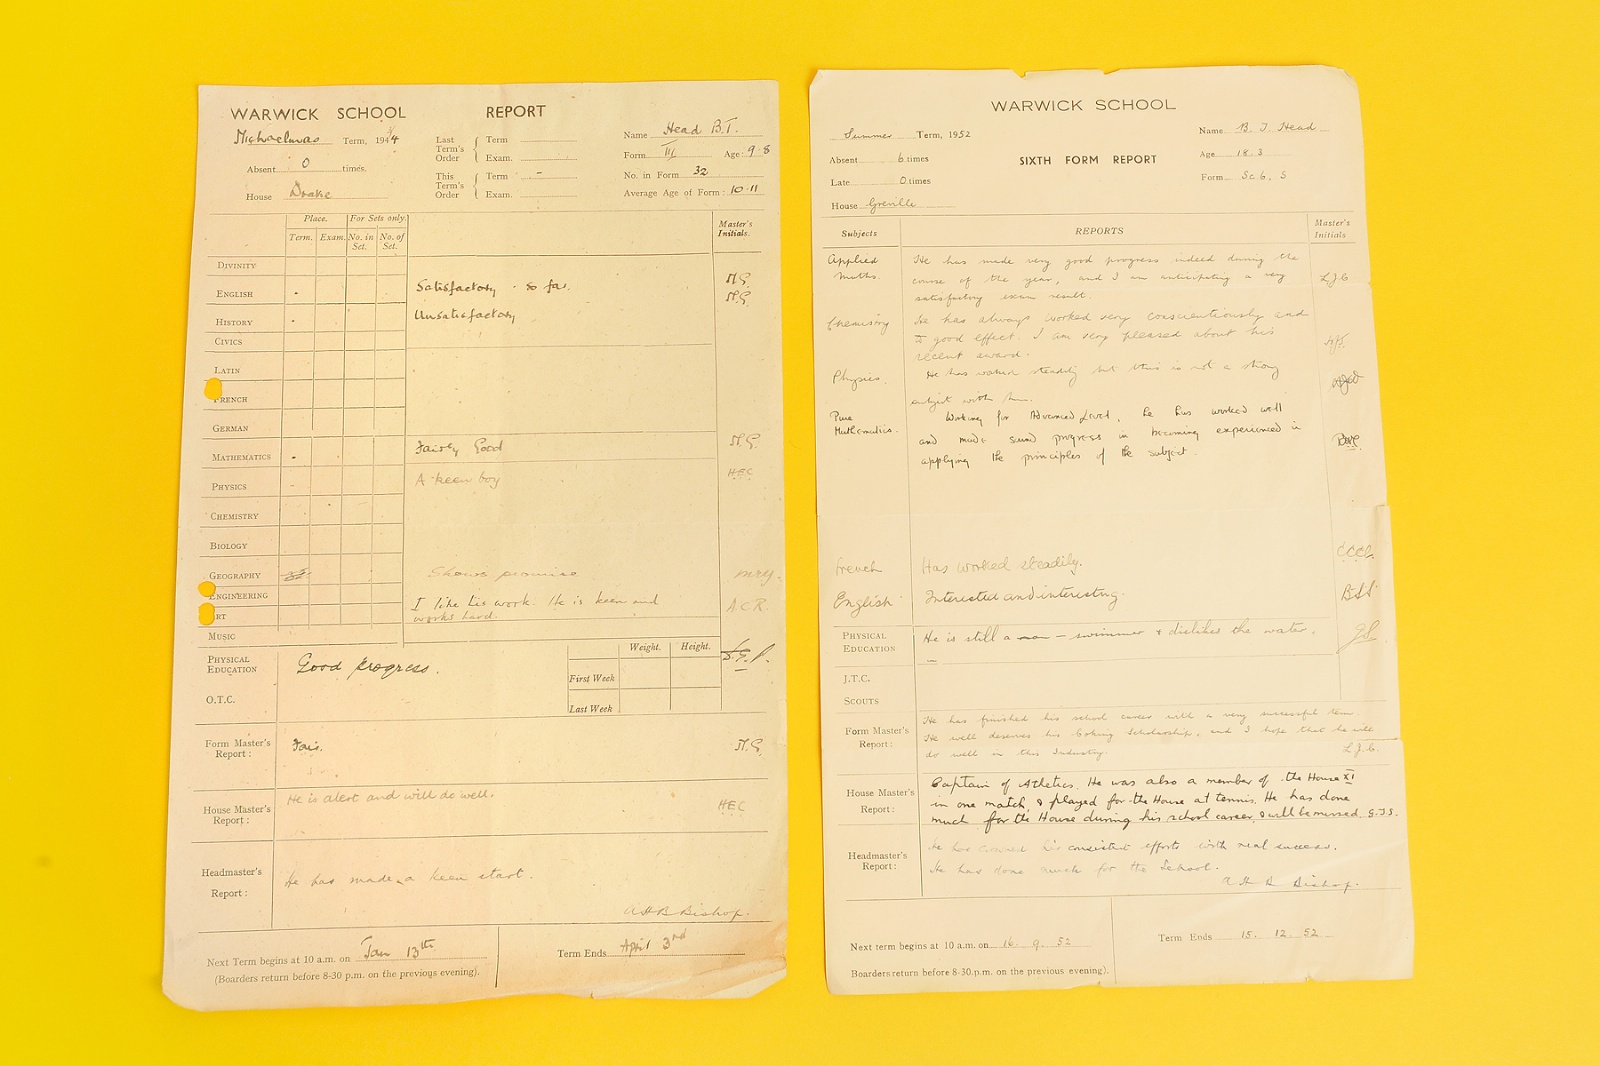 WARWICK SCHOOL REPORT
Michaelmas Term, 1944
Absent 0 times.
House Drake
Last Term's Order { Term
Exam.
This Term's Order { Term -
Exam.
Name Head B.T.
Form III Age: 9.8
No. in Form 32
Average Age of Form: 10.11
Place. For Sets only.
Term. Exam. No. in Set. No. of Set.
Master's Initials.
DIVINITY
ENGLISH Satisfactory - so far. M.G.
HISTORY Unsatisfactory M.G.
CIVICS
LATIN
FRENCH
GERMAN
MATHEMATICS Fairly Good M.G.
PHYSICS A keen boy HEC
CHEMISTRY
BIOLOGY
GEOGRAPHY Shows promise
ENGINEERING
ART I like his work. He is keen and A.C.R.
works hard.
MUSIC
PHYSICAL EDUCATION Good progress.
Weight. Height.
First Week
Last Week
O.T.C.
Form Master's Report: Fair. M.G.
House Master's Report: He is alert and will do well. HEC
Headmaster's Report: He has made a keen start.
AHBBishop.
Next Term begins at 10 a.m. on Jan 13th
(Boarders return before 8-30 p.m. on the previous evening).
Term Ends April 3rd
WARWICK SCHOOL
Summer Term, 1952
Absent 6 times
Late 0 times
House Greville
SIXTH FORM REPORT
Name B. T. Head
Age 18.3
Form Sc 6. S
Subjects REPORTS Master's Initials
Applied Maths. He has made very good progress indeed during the
course of the year, and I am anticipating a very L.J.C
satisfactory exam result.
Chemistry He has always worked very conscientiously and
to good effect. I am very pleased about his
recent award.
Physics. He has worked steadily but this is not a strong
subject with him.
Pure Mathematics. Working for Advanced Level, he has worked well
and made sound progress in becoming experienced in
applying the principles of the subject.
French Has worked steadily.
English Interested and interesting.
PHYSICAL EDUCATION He is still a non-swimmer & dislikes the water.
J.T.C.
SCOUTS
Form Master's Report: He has finished his school career with a very successful term
He well deserves his Coking Scholarship, and I hope that he will
do well in this Industry. L.J.C.
House Master's Report: Captain of Athletics. He was also a member of the House XI
in one match, & played for the House at tennis. He has done
much for the House during his school career, & will be missed. G.J.S.
Headmaster's Report: He has crowned his consistent efforts with real success.
He has done much for the School.
A H B Bishop.
Next term begins at 10 a.m. on 16. 9. 52
Boarders return before 8-30.p.m. on the previous evening).
Term Ends 15. 12. 52